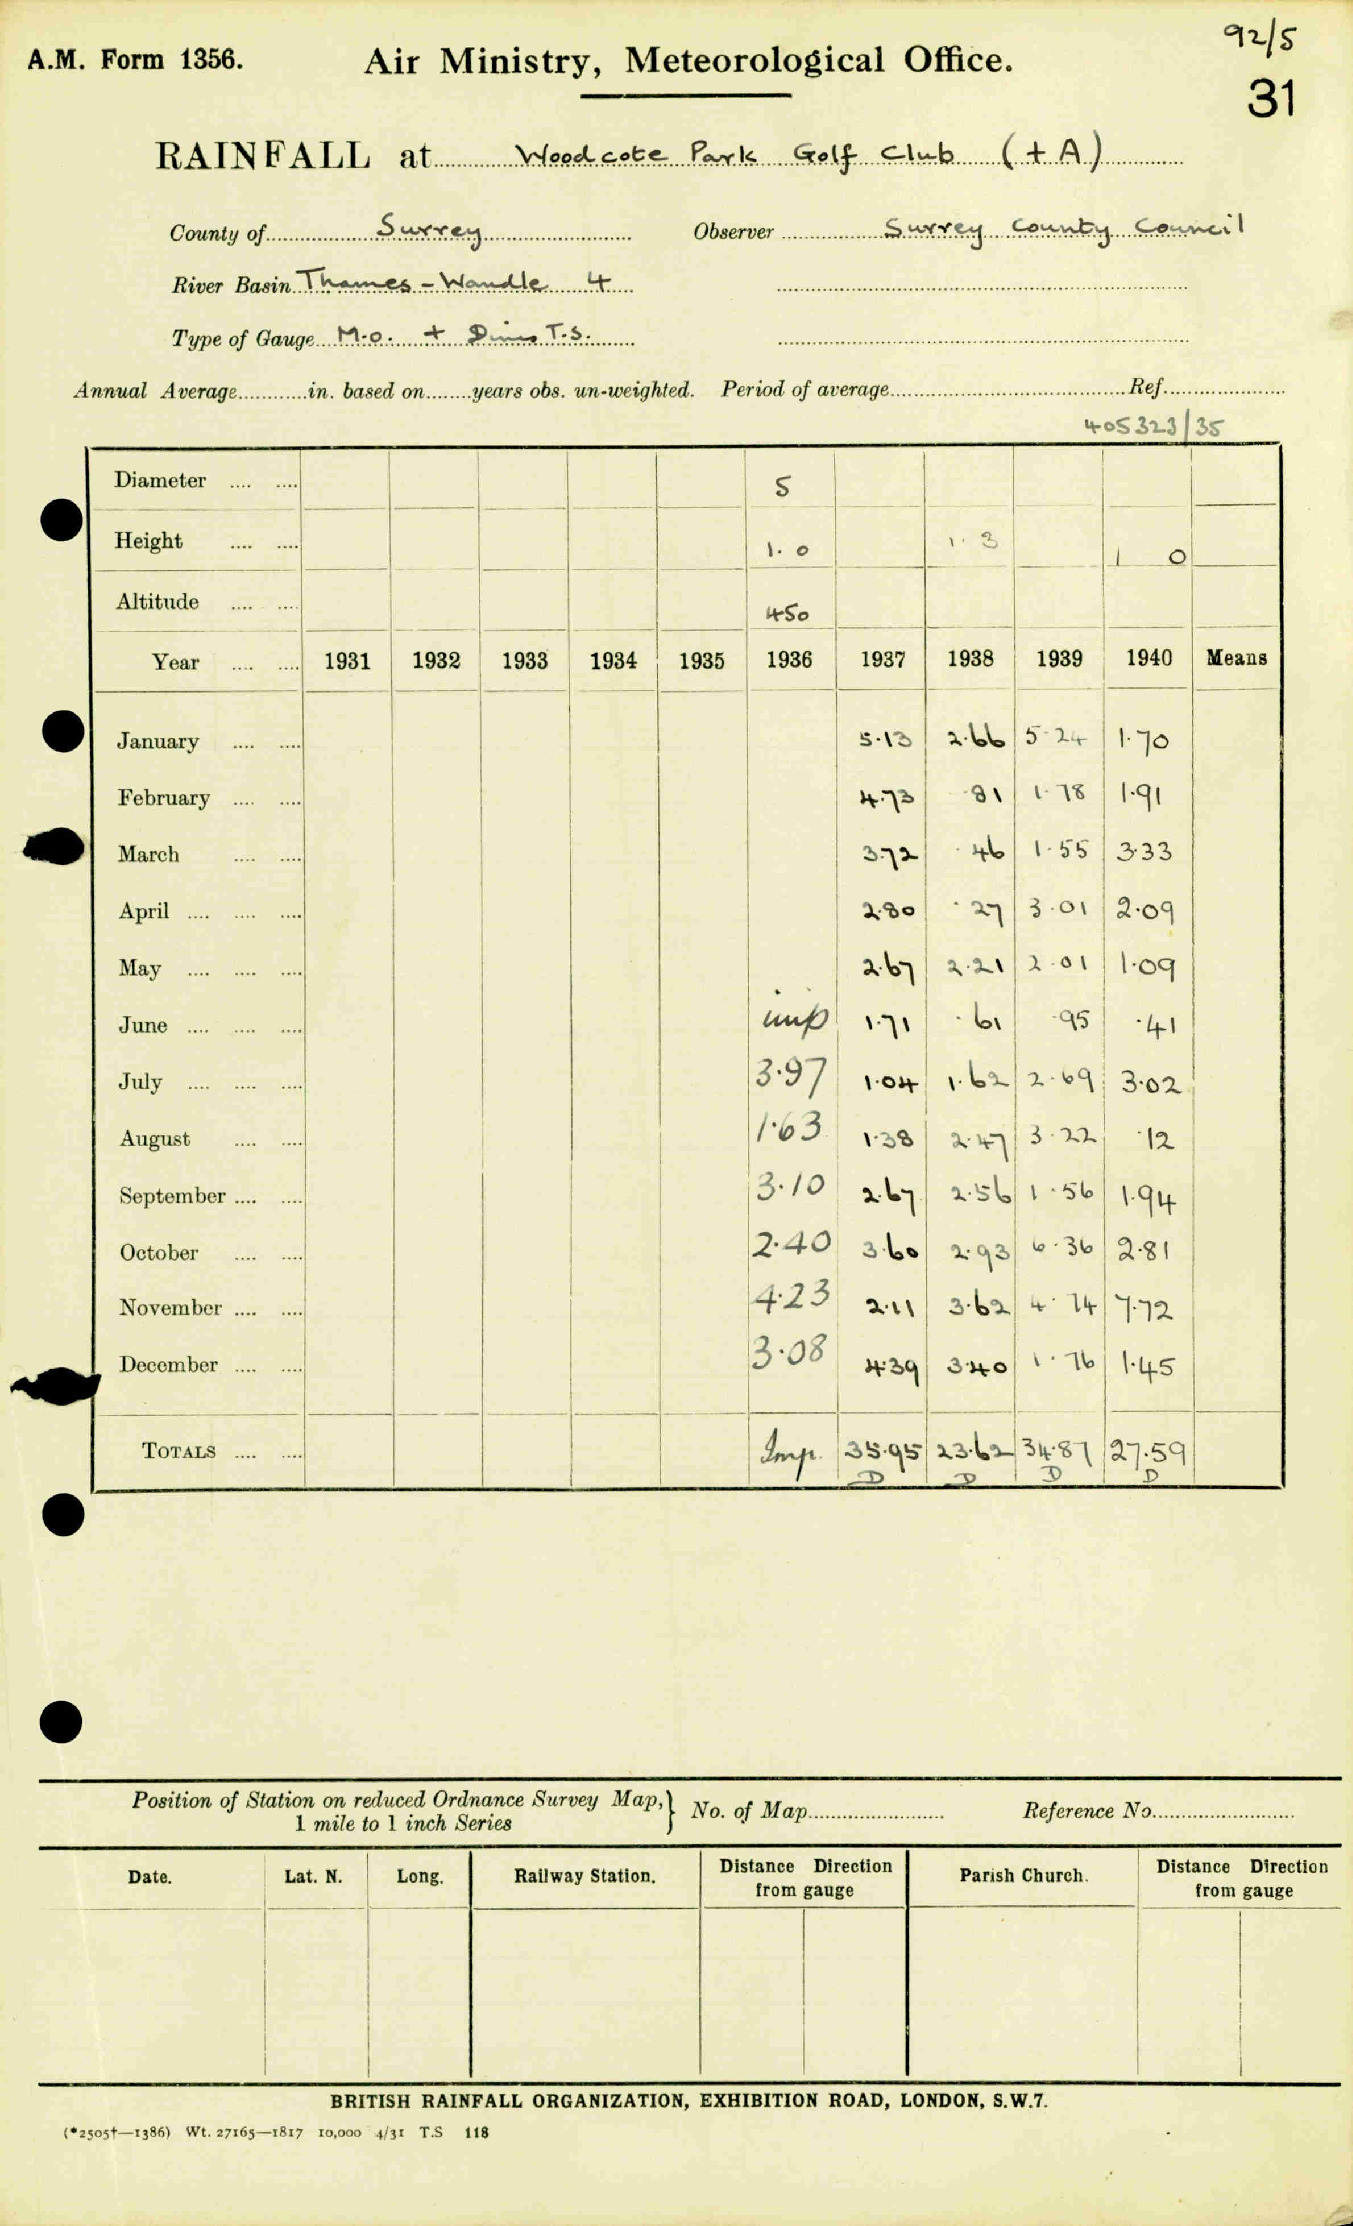 92/5
A.M. Form 1356. Air Ministry, Meteorological Office.
31
RAINFALL at Woodcote Park Golf Club (+ A)
County of Surrey Observer Surrey County Council
River Basin Thames - Wandle 4
Type of Gauge M.O. + Dines T.S.
Annual Average in. based on years obs. un-weighted. Period of average Ref.
405323/35
Diameter 5
Height 1.0 1.3 1 0
Altitude 450
Year 1931 1932 1933 1934 1935 1936 1937 1938 1939 1940 Means
January 5.13 2.66 5.24 1.70
February 4.73 .81 1.78 1.91
March 3.72 .46 1.55 3.33
April 2.80 .27 3.01 2.09
May 2.67 2.21 2.01 1.09
June imp 1.71 .61 .95 .41
July 3.97 1.04 1.62 2.69 3.02
August 1.63 1.38 2.47 3.22 .12
September 3.10 2.67 2.56 1.56 1.94
October 2.40 3.60 2.93 6.36 2.81
November 4.23 2.11 3.62 4.74 7.72
December 3.08 4.39 3.40 1.76 1.45
TOTALS Imp. 35.95 23.62 34.87 27.59
D D D D
Position of Station on reduced Ordnance Survey Map, 1 mile to 1 inch Series } No. of Map Reference No.
Date. Lat. N. Long. Railway Station. Distance Direction from gauge Parish Church. Distance Direction from gauge
BRITISH RAINFALL ORGANIZATION, EXHIBITION ROAD, LONDON, S.W.7.
(*2505†—1386) Wt. 27165—1817 10,000 4/31 T.S 118